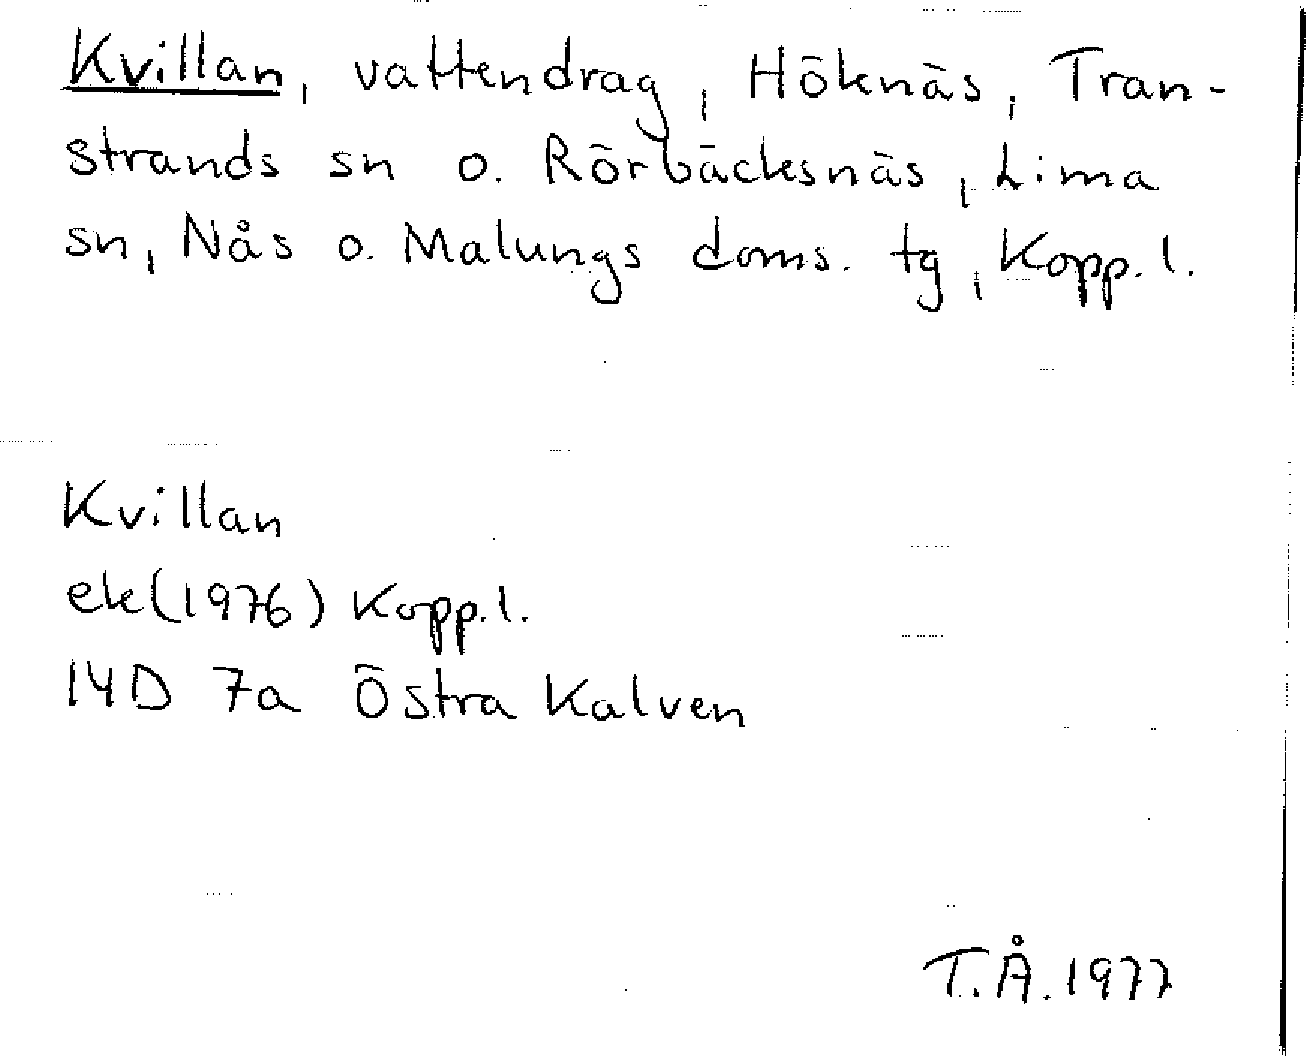 Kvillan, vattendrag, Höknäs, Tran-
strands sn o. Rörbäcksnäs, Lima
sn, Nås o. Malungs doms. tg, Kopp. l.
Kvillan
ek(1976) Kopp. l.
14D 7a Östra Kalven
T.Å. 1977